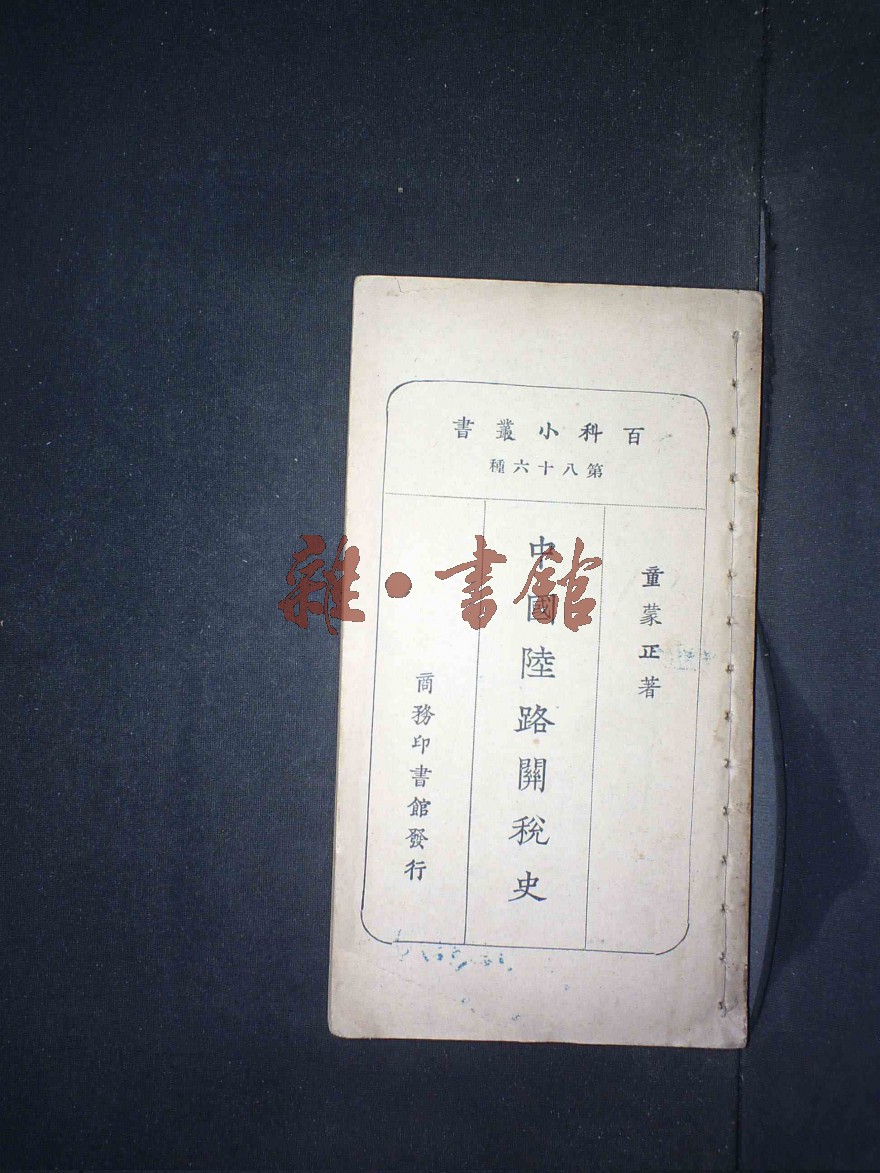 百科小叢書
第八十六種
童蒙正著
中國陸路關稅史
商務印書館發行
雜·書館